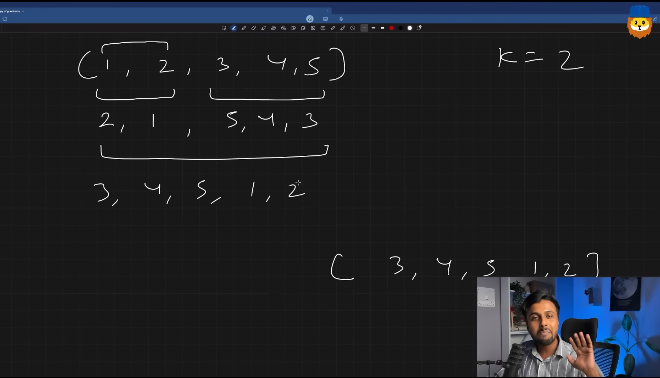 (1, 2, 3, 4, 5]
K = 2
2, 1, 5, 4, 3
3, 4, 5, 1, 2
[ 3, 4, 5 1, 2 ]